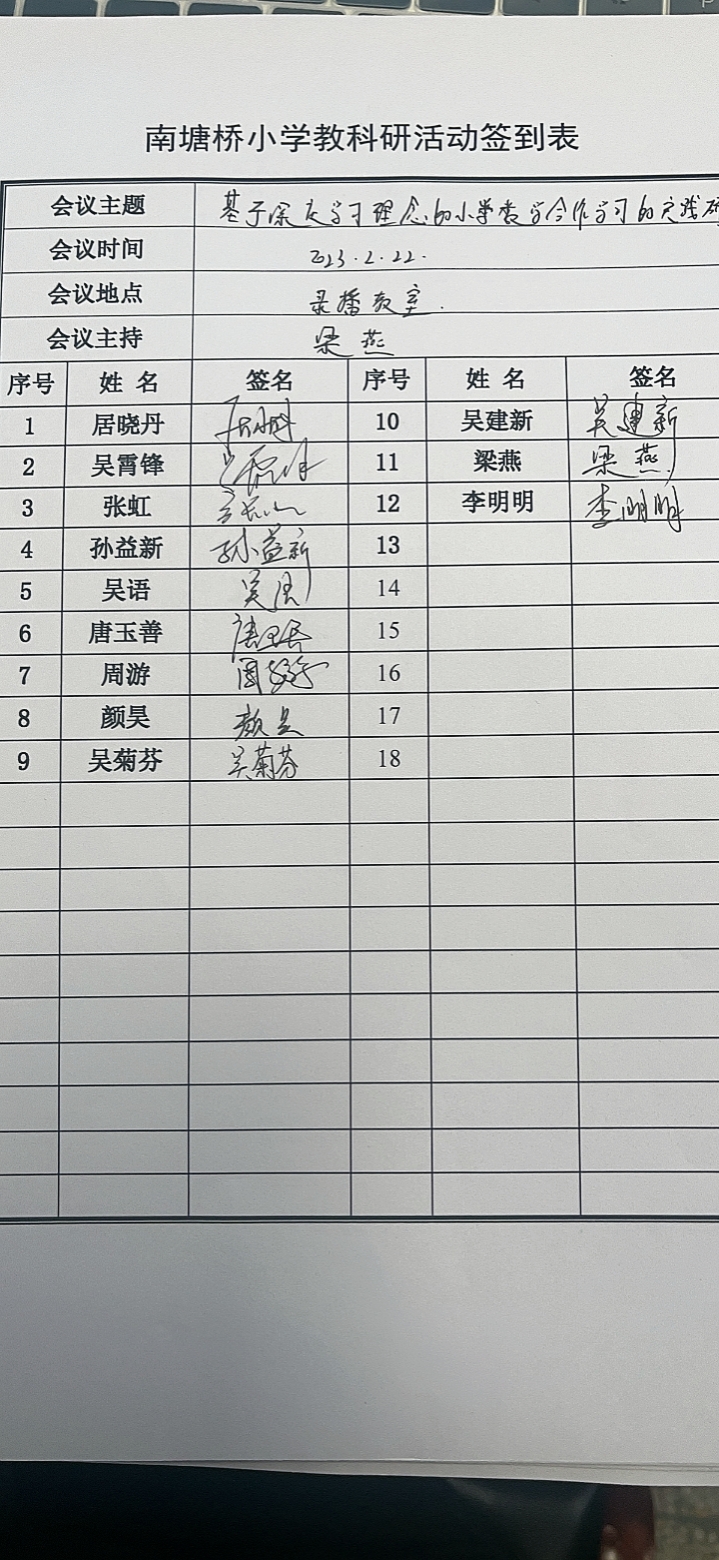 南塘桥小学教科研活动签到表
会议主题 基于深度学习理念的小学数学合作学习的实践研
会议时间 2023.2.22.
会议地点 录播教室.
会议主持 梁燕
序号 姓名 签名 序号 姓名 签名
1 居晓丹 10 吴建新 吴建新
2 吴霄锋 11 梁燕 梁燕
3 张虹 12 李明明 李明明
4 孙益新 孙益新 13
5 吴语 吴语 14
6 唐玉善 唐玉善 15
7 周游 周游 16
8 颜昊 颜昊 17
9 吴菊芬 吴菊芬 18